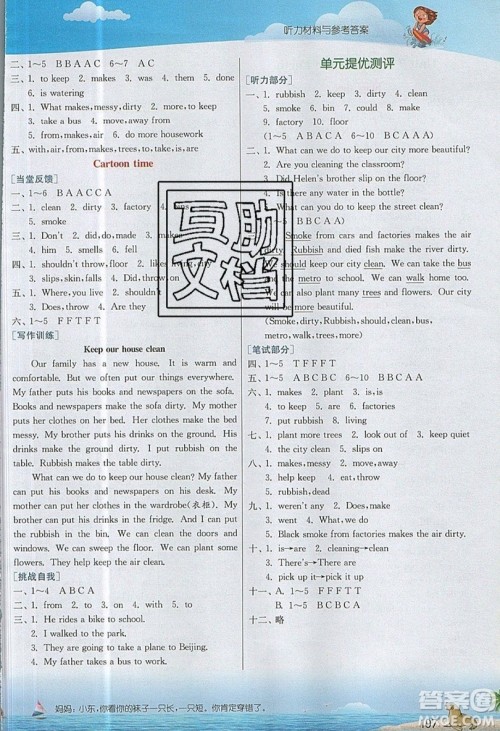 听力材料与参考答案
二、1~5 BBAAC 6~7 AC
三、1. to keep 2. makes 3. any 4. them 5. done
6. is watering
四、1. What makes,messy,dirty 2. more,more,cleaner
3. take a bus 4. moving,away,from
5. from,makes,air 6. do more housework
五、with,air,from,makes,trees,to,take,is,are
Cartoon time
[当堂反馈]
一、1~6 BAACCA
二、1. clean 2. dirty 3. factory 4.
5. smoke
三、1. Don't 2. did,do 3. made,mo
4. him 5. smells 6. fell
四、1. shouldn't throw,floor 2. likes living,city
3. slips,skin,falls 4. Did,throw,on
五、1. Where,you live 2. does,do 3. Are they
六、1~5 FFTFT
[写作训练]
Keep our house clean
Our family has a new house. It is warm and
comfortable. But many things make it dirty and messy.
My father puts his books and newspapers on the sofa.
Books and newspapers make the sofa dirty. My mother
puts her clothes on her bed. Her clothes make the bed
messy. My brother puts his drinks on the ground. His
drinks make the ground dirty. I put rubbish on the
table. Rubbish makes the table dirty.
What can we do to keep our house clean? My father
can put his books and newspapers on his desk. My
mother can put her clothes in the wardrobe(衣柜). My
brother can put his drinks in the fridge. And I can put
the rubbish in the bin. We can clean the doors and
windows. We can sweep the floor. We can put plant
some flowers. Our house will be clean and beautiful.
[挑战自我]
一、1~4 ABCA
二、1. from 2. to 3. on 4. from,to
三、1. He rides a bike to school.
2. I walked to the park.
3. They are going to take a plane to Beijing.
4. My grandparents will go there by train.
妈妈：小东，你看你的袜子一只长，一只短。你肯定穿错了。
单元提优测评
[听力部分]
一、1. rubbish 2. keep 3. moved 4. clean
5. smoke 6. bin 7. plant 8. from
9. factory 10. dirty
(1~5 ABACA 6~10 BCAAC)
二、1. What can we do to keep our city more beautiful?
2. Are you cleaning the classroom?
3. Did Helen's brother slip on the floor?
4. Is there any water in the bottle?
5. What can you do to keep the street clean?
Smoke from cars and factories makes the air
dirty. Rubbish and died fish make the river dirty.
We should keep our city clean. We can take the bus
and the metro to school. We can walk home too.
We can also plant many trees and flowers. Our city
will be more beautiful.
(Smoke,dirty,Rubbish,should,clean,bus,
metro,walk,trees,more)
[笔试部分]
四、1~5 TFFFT
五、1~5 ABCBC 6~10 ABCBC
六、1. makes 2. plant 3. is
4. keep 5. are 6. factories
7. put rubbish
七、1. plant more trees 2. look out of 3. keep quiet
4. the city clean 5. slips on
八、1. makes,messy 2. move away from
3. help keep 4. eat,throw
5. rubbish,dead
九、1. weren't 2. does,do 3. What make
4. want to go 5. What,do
6. Black smoke from factories makes the air dirty.
十、1. is→are 2. cleaning→clean
3. There→There are
4. pick up it→pick it up
十一、A. 1~5 FTFFT
B. 1~5 ACABC
十二、略